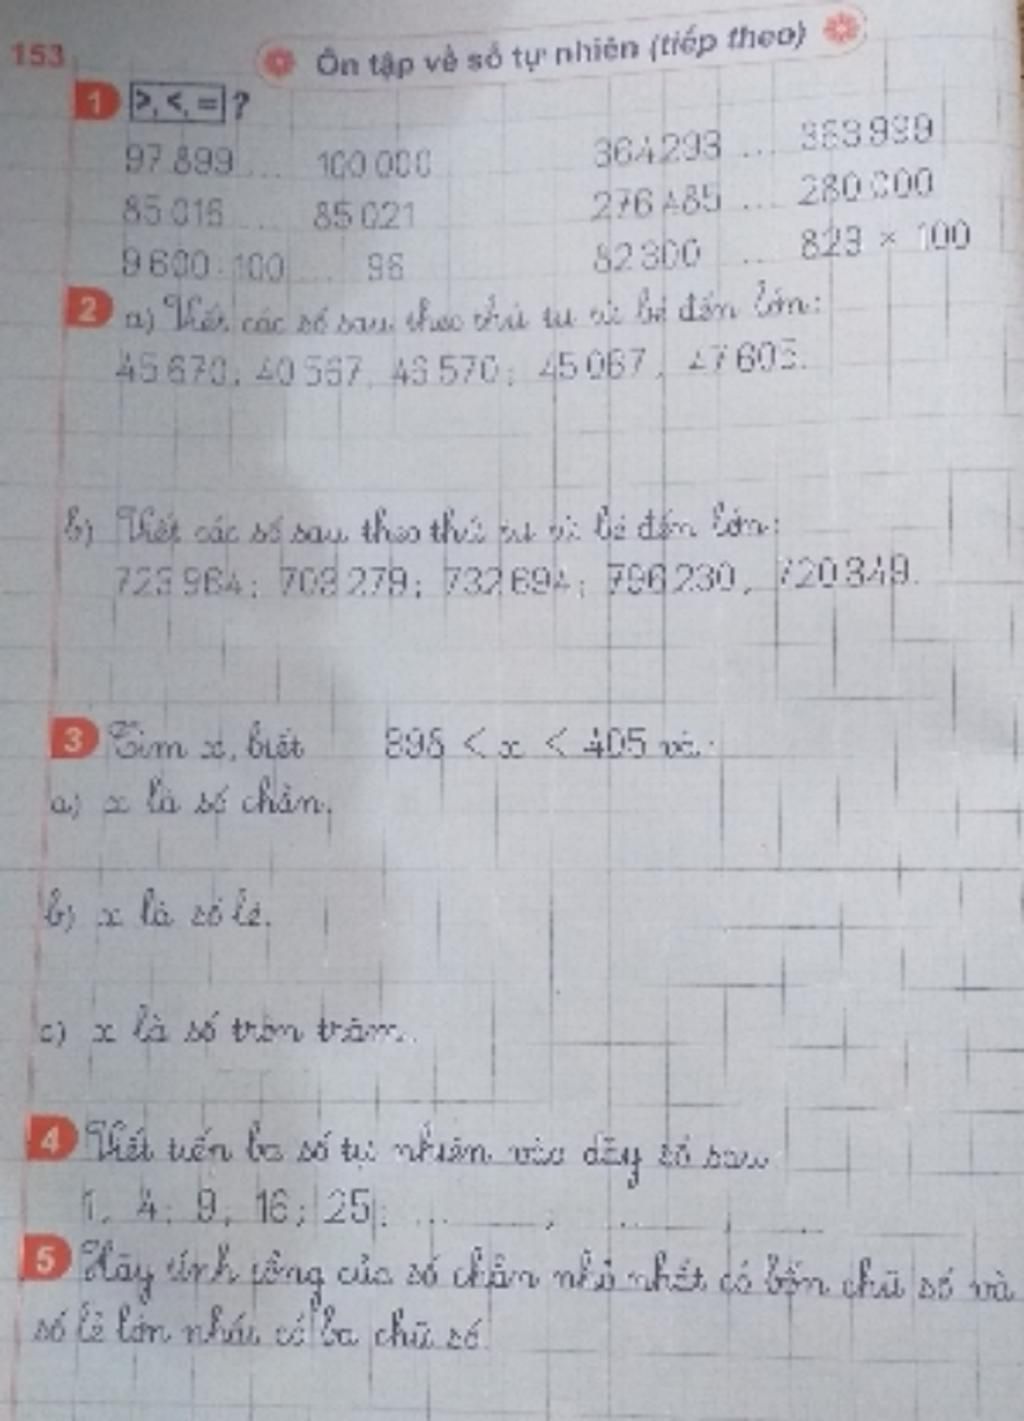 153
Ôn tập về số tự nhiên (tiếp theo)
1 >, <, = ?
97 899 ... 100 000 364 293 ... 363 999
85 016 ... 85 021 276 485 ... 280 000
9 600 : 100 ... 96 82 300 ... 823 × 100
2 a) Viết các số sau theo thứ tự từ bé đến lớn:
45 670; 40 567; 46 570; 45 067; 47 605.
b) Viết các số sau theo thứ tự từ bé đến lớn:
723 964; 703 279; 732 694; 796 230; 720 349.
3 Tìm x, biết 398 < x < 405 và:
a) x là số chẵn.
b) x là số lẻ.
c) x là số tròn trăm.
4 Viết tiếp ba số tự nhiên vào dãy số sau
1; 4; 9; 16; 25; ... ; ... ; ...
5 Hãy tính tổng của số chẵn nhỏ nhất có bốn chữ số và
số lẻ lớn nhất có ba chữ số.